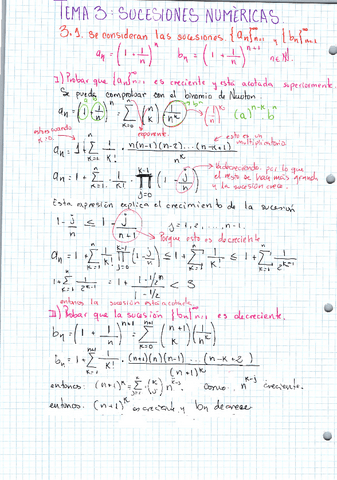 TEMA 3: SUCESIONES NUMÉRICAS.
3.1. Se consideran las sucesiones {an}∞n=1 y {bn}∞n=1
an = (1 + 1/n)^n   bn = (1 + 1/n)^(n+1)   n∈N.
I) Probar que {an}∞n=1 es creciente y está acotada superiormente.
Se puede comprobar con el binomio de Newton
an = (1 + 1/n)^n = Σ(k=0, n) (n k) 1/n^k   (a)^(n-k) · b^k
entra cuando k=0   exponente.   esto es un multiplicatorio
an = 1 + Σ(k=1, n) 1/k! · n(n-1)(n-2)...(n-k+1) / n^k
an = 1 + Σ(k=1, n) 1/k! · ∏(j=0, k-1) (1 - j/n)
por lo que el resto se hace más grande y la sucesión crece.
Esta expresión explica el crecimiento de la sucesión
1 - j/n ≤ 1 - j/(n+1)   j = 1, 2, ..., n-1.
Porque esto es decreciente
an = 1 + Σ(k=1, n) 1/k! ∏(j=0, k-1) (1 - j/n) ≤ 1 + Σ(k=1, n) 1/k! ≤ 1 + Σ(k=1, n) 1/2^(k-1)
1 + Σ(k=1, n) 1/2^(k-1) = 1 + (1 - 1/2^n)/(1 - 1/2) < 3
entonces la sucesión está acotada.
II) Probar que la sucesión {bn}∞n=1 es decreciente.
bn = (1 + 1/n)^(n+1) = Σ(k=0, n+1) (n+1 k) 1/n^k
bn = 1 + Σ(k=1, n+1) 1/k! · (n+1)(n)(n-1)...(n-k+2) / (n+1)^k
entonces (n+1)^k = Σ (k j) n^(k-j). Como n^(k-j) creciente.
entonces (n+1)^k es creciente y bn decrece